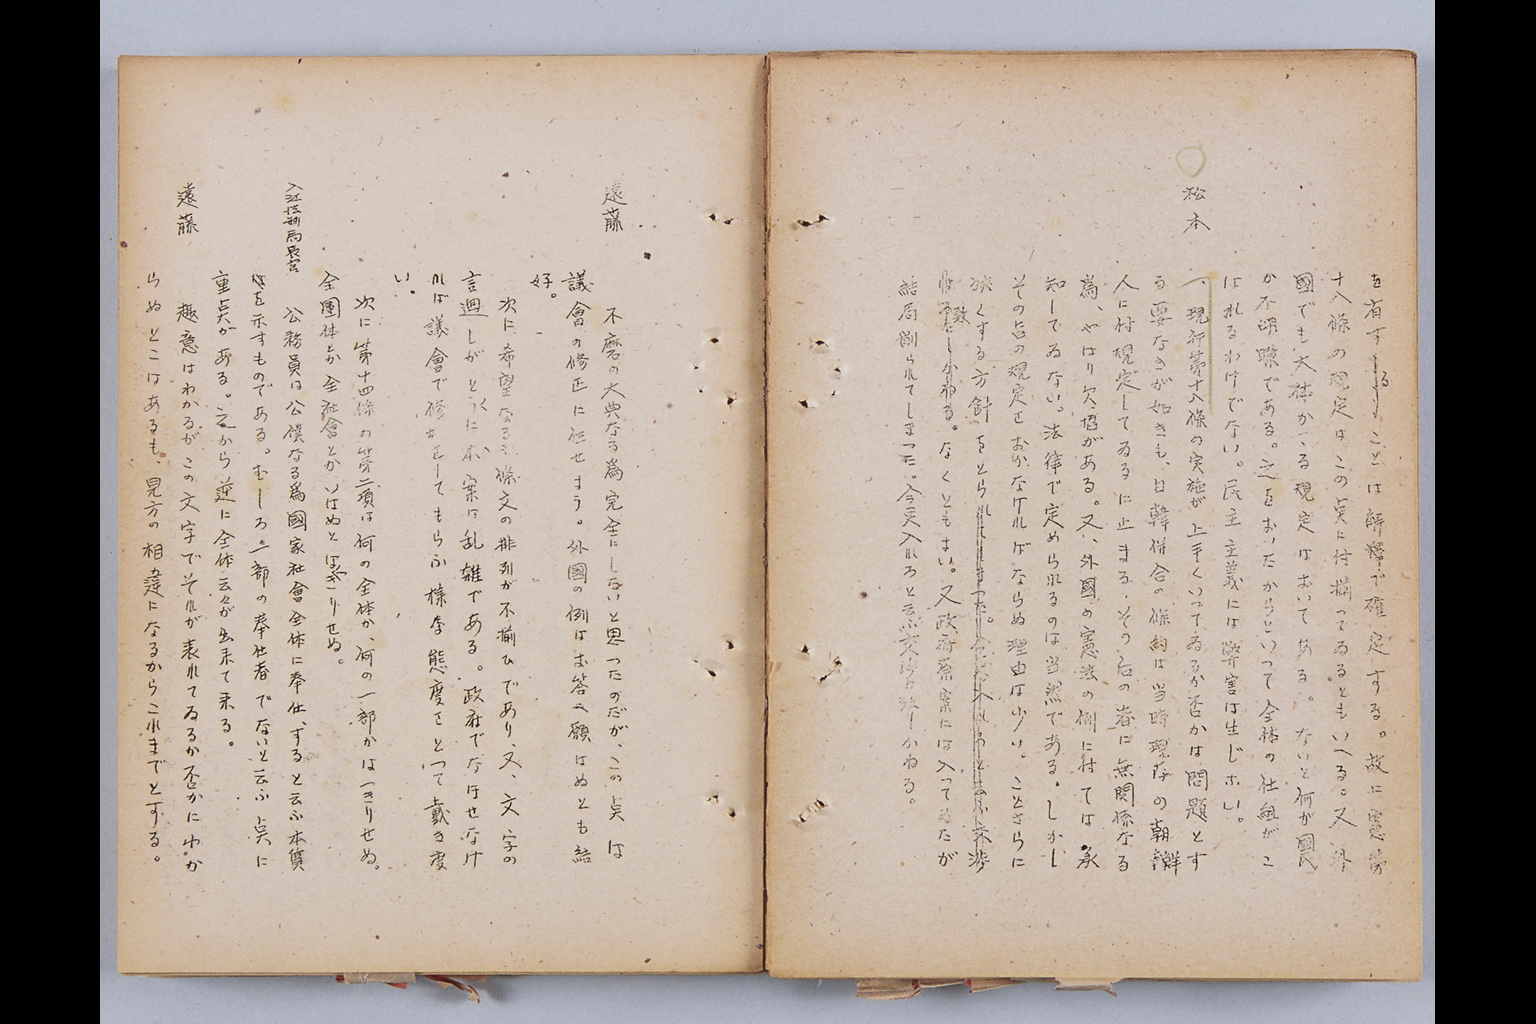 を有するヽことは解釋で確定する。故に憲㳒
十八條の規定はこの㸃に付揃つてゐるともいへる。又外
國でも大体かゝる規定はおいてある。ないと何が國民
か不明瞭である。之をおいたからといつて全体の仕組がこ
はれるわけでない。民主主義には弊害は生じない。
松本
一、現行第十八條の実施が上手くいつてゐるか否かは問題とす
る要なきが如きも、日韓併合の條約は当時現存の朝鮮
人に付規定してゐるに止まる。その后の者に無関係なる
為、やはり欠㸃がある。又、外國の憲法の例に付ては承
知してゐない。法律で定められるのは当然である。しかし
その旨の規定をおかなければならぬ理由は少い。ことさらに
狹くする方針をとられ
なくともよい。又政府原案には入つてゐたが
結局削られてしまつた。今更入れろと云ふ
遠藤
不磨の大典なる為完全にしたいと思つたのだが、この㸃は
議會の修正に任せよう。外國の例はお答へ願はぬとも結
好。
次に希望なるが、條文の排列が不揃ひであり、又、文字の
言廻しがとくに本案は乱雑である。政府でなほせなけ
れば議會で修正をしてもらふ様な態度をとつて戴き度
い。
次に第十四條の第二項は何の全体か、何の一部かはつきりせぬ。
全團体とか全社會とかいはぬとはつきりせぬ。
入江法制局長官
公務員は公僕なる為國家社會全体に奉仕、すると云ふ本質
を示すものである。むしろ。一部の奉仕者でないと云ふ㸃に
重㸃がある。之から逆に全体云々が出来て来る。
遠藤
趣意はわかるがこの文字でそれが表れてゐるか否かにわか
らぬとこはあるも、見方の相違になるからこれまでとする。